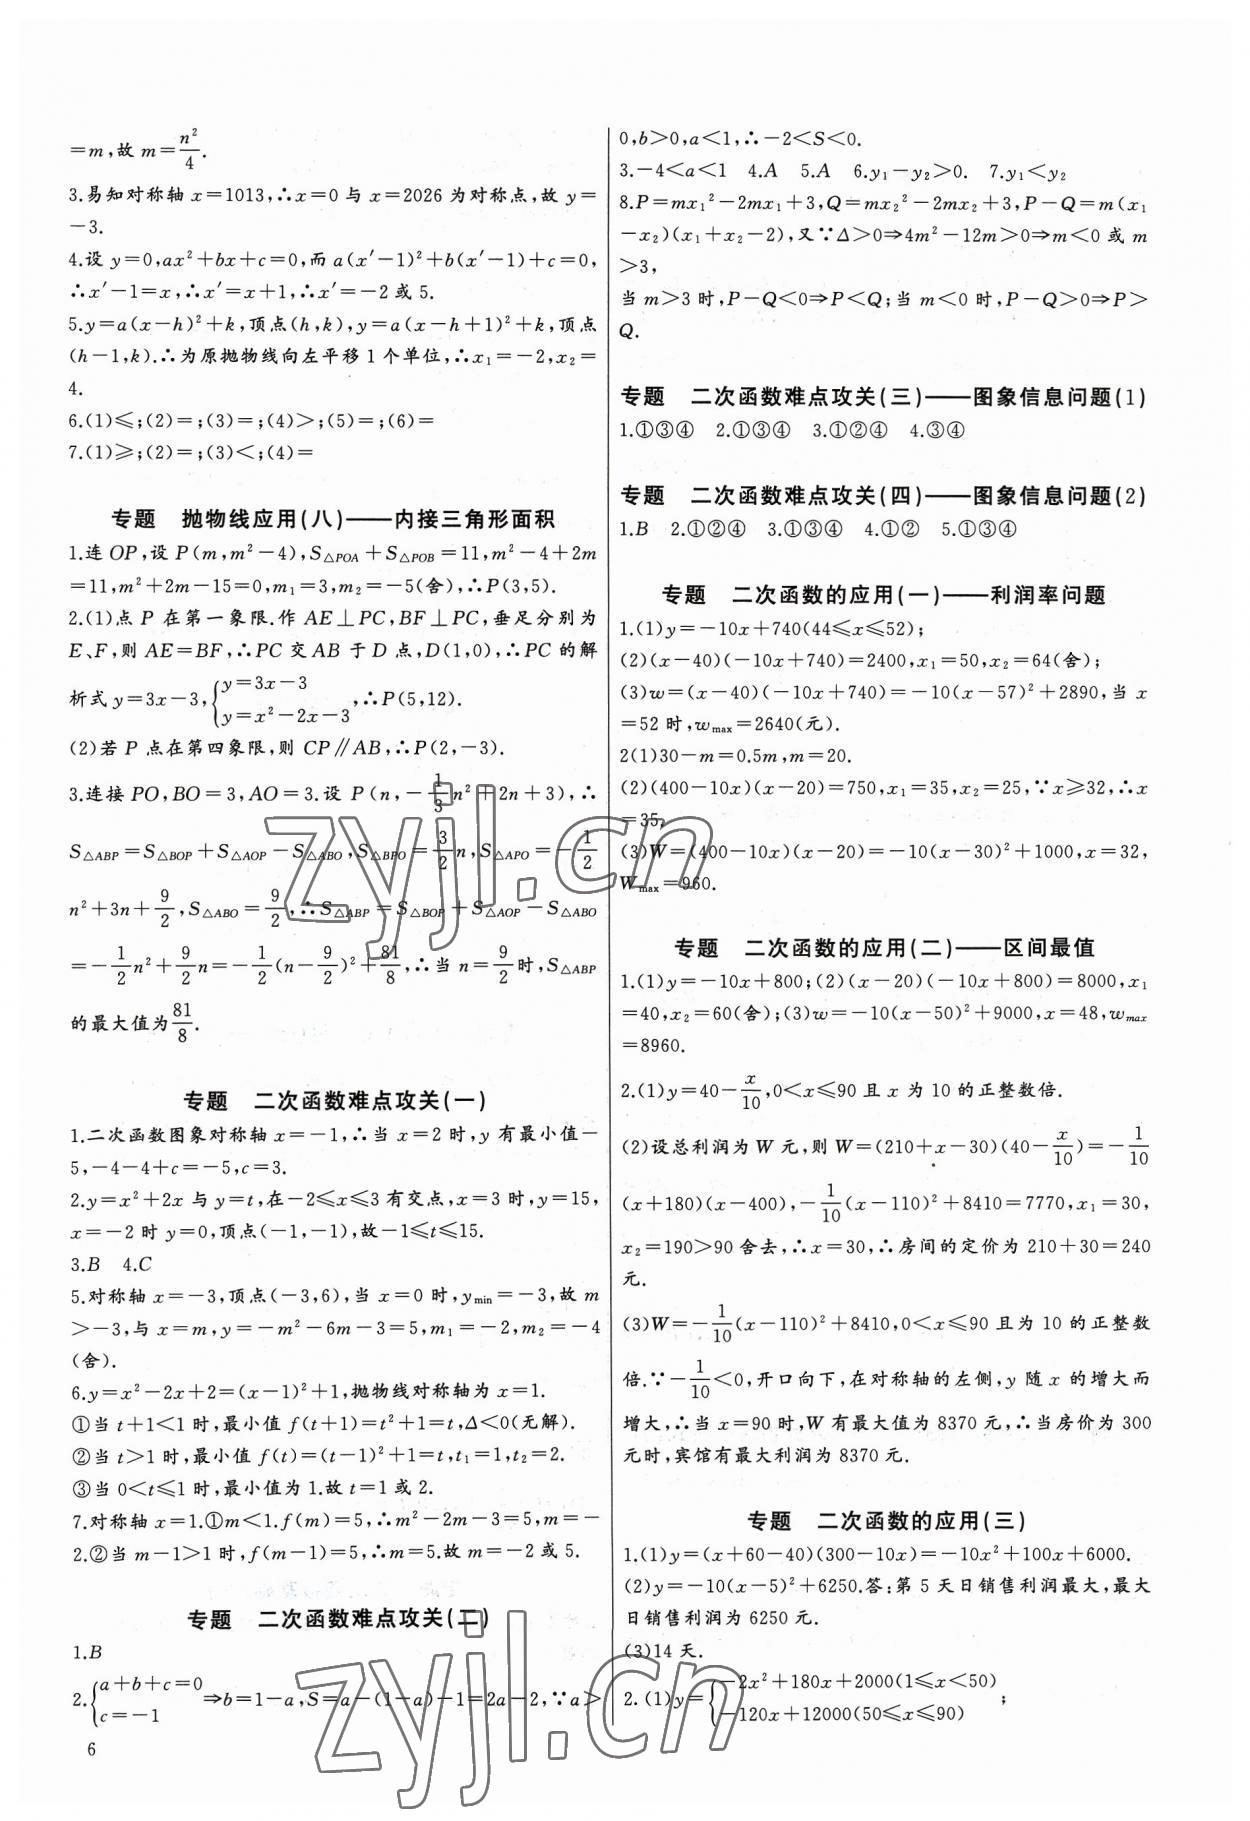 =m,故 m=n²/4.
3.易知对称轴 x=1013,∴x=0 与 x=2026 为对称点,故 y=
-3.
4.设 y=0,ax²+bx+c=0,而 a(x′-1)²+b(x′-1)+c=0,
∴x′-1=x,∴x′=x+1,∴x′=-2 或 5.
5.y=a(x-h)²+k,顶点(h,k),y=a(x-h+1)²+k,顶点
(h-1,k).∴为原抛物线向左平移 1 个单位,∴x₁=-2,x₂=
4.
6.(1)≤;(2)=;(3)=;(4)>;(5)=;(6)=
7.(1)≥;(2)=;(3)<;(4)=
专题 抛物线应用(八)——内接三角形面积
1.连 OP,设 P(m,m²-4),S△POA+S△POB=11,m²-4+2m
=11,m²+2m-15=0,m₁=3,m₂=-5(舍),∴P(3,5).
2.(1)点 P 在第一象限.作 AE⊥PC,BF⊥PC,垂足分别为
E、F,则 AE=BF,∴PC 交 AB 于 D 点,D(1,0),∴PC 的解
析式 y=3x-3,{y=3x-3 y=x²-2x-3,∴P(5,12).
(2)若 P 点在第四象限,则 CP∥AB,∴P(2,-3).
3.连接 PO,BO=3,AO=3.设 P(n,-1/3n²+2n+3),∴
S△ABP=S△BOP+S△AOP-S△ABO,S△BPO=3/2n,S△APO=-1/2
n²+3n+9/2,S△ABO=9/2,∴S△ABP=S△BOP+S△AOP-S△ABO
=-1/2n²+9/2n=-1/2(n-9/2)²+81/8,∴当 n=9/2时,S△ABP
的最大值为81/8.
专题 二次函数难点攻关(一)
1.二次函数图象对称轴 x=-1,∴当 x=2 时,y 有最小值-
5,-4-4+c=-5,c=3.
2.y=x²+2x 与 y=t,在-2≤x≤3 有交点,x=3 时,y=15,
x=-2 时 y=0,顶点(-1,-1),故-1≤t≤15.
3.B 4.C
5.对称轴 x=-3,顶点(-3,6),当 x=0 时,ymin=-3,故 m
>-3,与 x=m,y=-m²-6m-3=5,m₁=-2,m₂=-4
(舍).
6.y=x²-2x+2=(x-1)²+1,抛物线对称轴为 x=1.
①当 t+1<1 时,最小值 f(t+1)=t²+1=t,Δ<0(无解).
②当 t>1 时,最小值 f(t)=(t-1)²+1=t,t₁=1,t₂=2.
③当 0<t≤1 时,最小值为 1.故 t=1 或 2.
7.对称轴 x=1.①m<1.f(m)=5,∴m²-2m-3=5,m=-
2.②当 m-1>1 时,f(m-1)=5,∴m=5.故 m=-2 或 5.
专题 二次函数难点攻关(二)
1.B
2.{a+b+c=0 c=-1⇒b=1-a,S=a-(1-a)-1=2a-2,∵a>
6
0,b>0,a<1,∴-2<S<0.
3.-4<a<1 4.A 5.A 6.y₁-y₂>0. 7.y₁<y₂
8.P=mx₁²-2mx₁+3,Q=mx₂²-2mx₂+3,P-Q=m(x₁
-x₂)(x₁+x₂-2),又∵Δ>0⇒4m²-12m>0⇒m<0 或 m
>3,
当 m>3 时,P-Q<0⇒P<Q;当 m<0 时,P-Q>0⇒P>
Q.
专题 二次函数难点攻关(三)——图象信息问题(1)
1.①③④ 2.①③④ 3.①②④ 4.③④
专题 二次函数难点攻关(四)——图象信息问题(2)
1.B 2.①②④ 3.①③④ 4.①② 5.①③④
专题 二次函数的应用(一)——利润率问题
1.(1)y=-10x+740(44≤x≤52);
(2)(x-40)(-10x+740)=2400,x₁=50,x₂=64(舍);
(3)w=(x-40)(-10x+740)=-10(x-57)²+2890,当 x
=52 时,wmax=2640(元).
2(1)30-m=0.5m,m=20.
(2)(400-10x)(x-20)=750,x₁=35,x₂=25,∵x≥32,∴x
=35,
(3)W=(400-10x)(x-20)=-10(x-30)²+1000,x=32,
Wmax=960.
专题 二次函数的应用(二)——区间最值
1.(1)y=-10x+800;(2)(x-20)(-10x+800)=8000,x₁
=40,x₂=60(舍);(3)w=-10(x-50)²+9000,x=48,wmax
=8960.
2.(1)y=40-x/10,0<x≤90 且 x 为 10 的正整数倍.
(2)设总利润为 W 元,则 W=(210+x-30)(40-x/10)=-1/10
(x+180)(x-400),-1/10(x-110)²+8410=7770,x₁=30,
x₂=190>90 舍去,∴x=30,∴房间的定价为 210+30=240
元.
(3)W=-1/10(x-110)²+8410,0<x≤90 且为 10 的正整数
倍.∵-1/10<0,开口向下,在对称轴的左侧,y 随 x 的增大而
增大,∴当 x=90 时,W 有最大值为 8370 元,∴当房价为 300
元时,宾馆有最大利润为 8370 元.
专题 二次函数的应用(三)
1.(1)y=(x+60-40)(300-10x)=-10x²+100x+6000.
(2)y=-10(x-5)²+6250.答:第 5 天日销售利润最大,最大
日销售利润为 6250 元.
(3)14 天.
2.(1)y={-2x²+180x+2000(1≤x<50) -120x+12000(50≤x≤90);
zyjl.cn
zyjl.cn